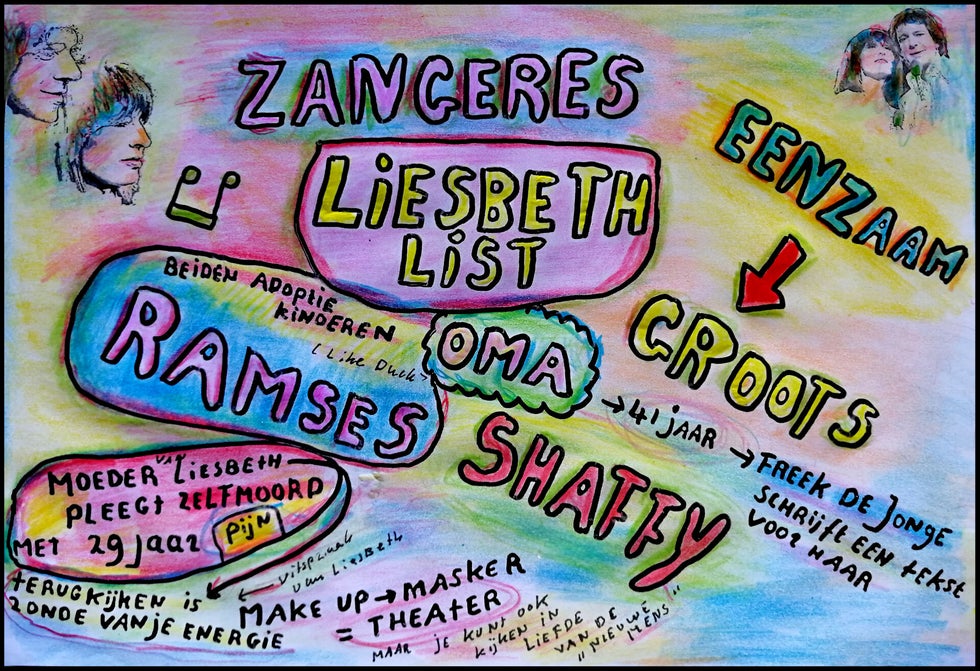 ZANGERES
LiESBETH
LiST
EENZAAM
BEiDEN ADOPTiE
KiNDEREN
(Like Duck>
RAMSES
OMA
GROOTS
→ 41 jAAR →
FREEK DE JONGE
SCHRIJFT EEN tEKST
VOOR HAAR
SHAFFY
MOEDER VAN LiESBETH
PLEEGt ZELFMOORD
MET 29 jaar
PijN
uitspraak
van LiesBeth
tERUGKiJKEN is
ZONDE VAN JE ENERGiE
MAKE UP → MASKER
= THEAtER
MAAR JE KUNT OOK
KijKEN iN
LiEFDE
VAN DE
"NiEUWE
MENS"